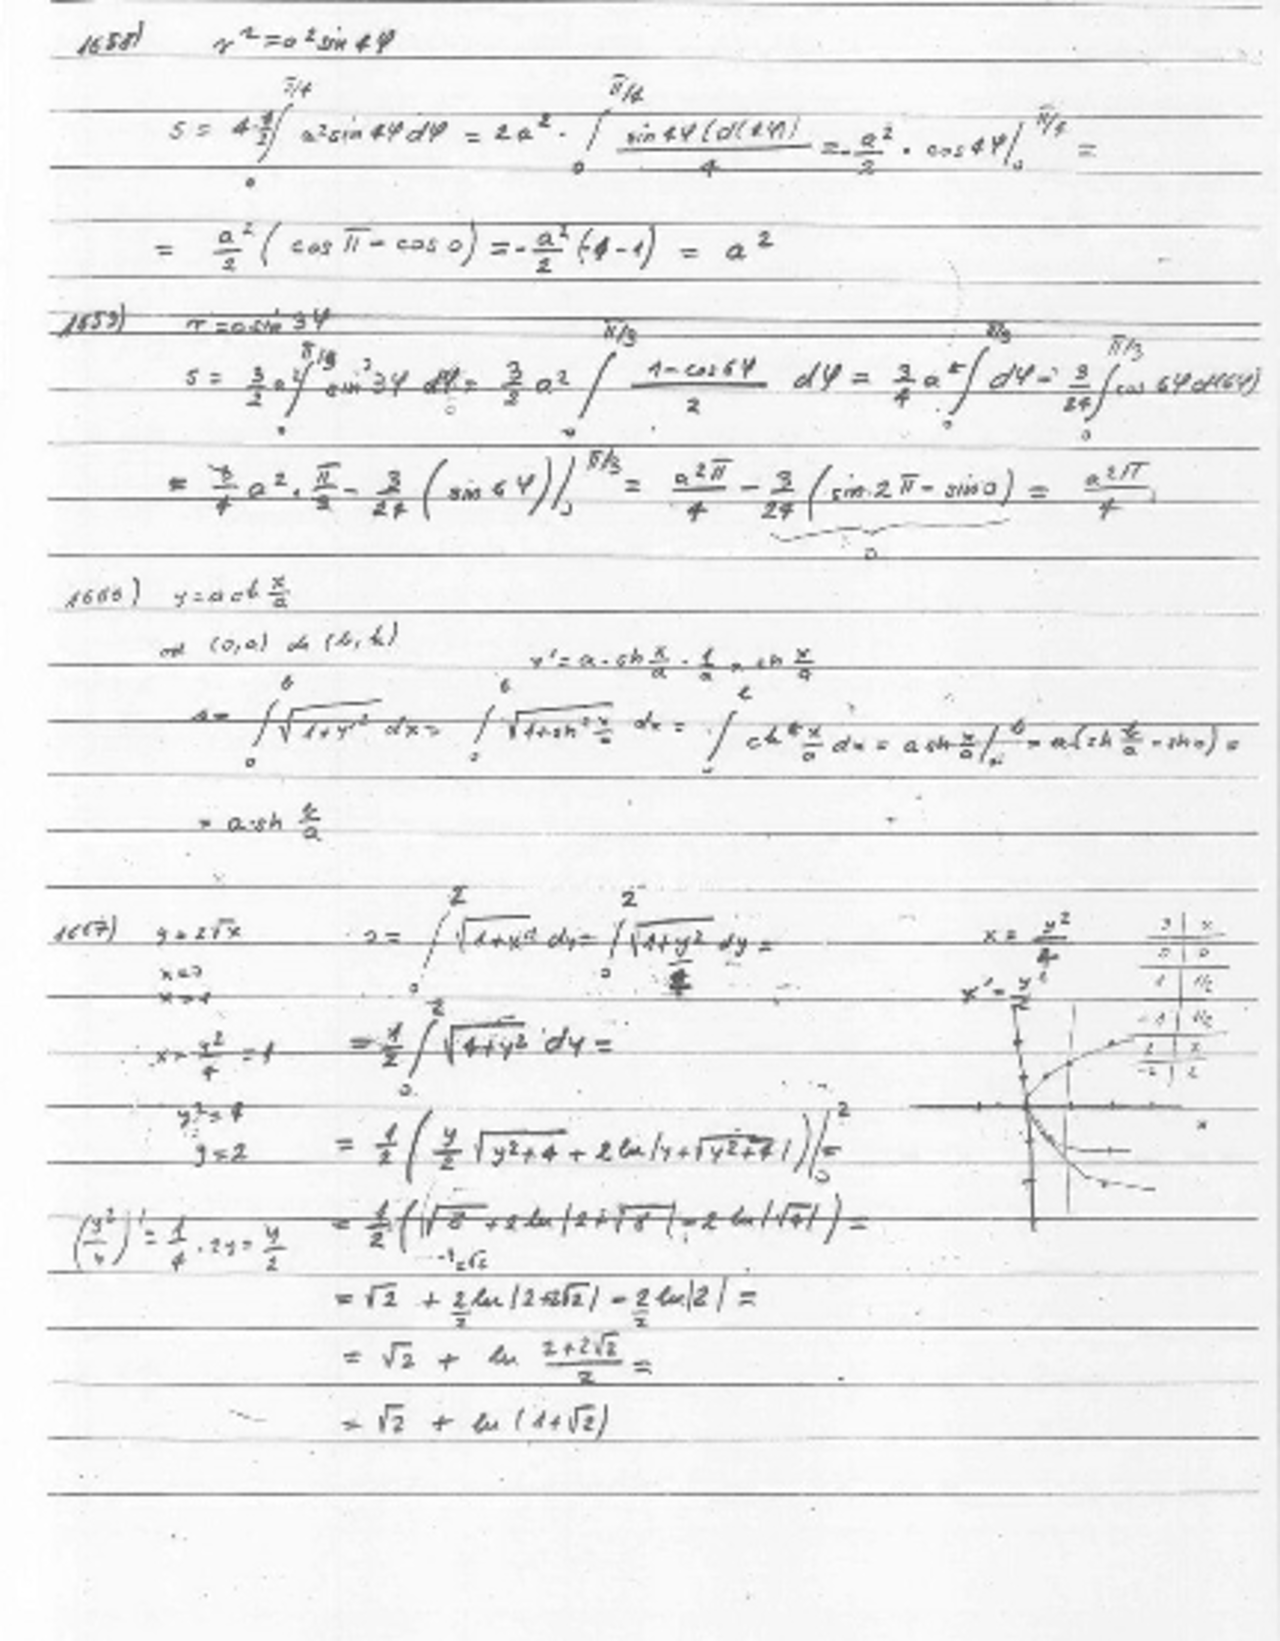 1658) r² = a² sin 4φ
S = 4·1/2 ∫₀^{π/4} a² sin 4φ dφ = 2a² · ∫₀^{π/4} sin 4φ (d(4φ)) / 4 = -a²/2 · cos 4φ |₀^{π/4} =
= a²/2 ( cos π - cos 0 ) = -a²/2 (-1-1) = a²
1659) r = a sin 3φ
S = 3/2 a² ∫₀^{π/3} sin² 3φ dφ = 3/2 a² ∫₀^{π/3} (1-cos 6φ)/2 dφ = 3/4 a² ∫₀^{π/3} dφ - 3/24 ∫₀^{π/3} cos 6φ d(6φ)
= 3/4 a² · π/3 - 3/24 ( sin 6φ ) |₀^{π/3} = a²π/4 - 3/24 ( sin 2π - sin 0 ) = a²π/4
0
1666) y = a ch x/a
od (0,a) do (b,h)
y' = a · sh x/a · 1/a = sh x/a
s = ∫₀^b √(1+y'²) dx = ∫₀^b √(1+sh² x/a) dx = ∫₀^b ch x/a dx = a sh x/a |₀^b = a (sh b/a - sh 0) =
= a·sh b/a
1667) y = 2√x s = ∫₀² √(1+x'²) dy = ∫₀² √(1+y²/4) dy = x = y²/4
x=0
x=1 x' = y/2
x = y²/4 = 1 = 1/2 ∫₀² √(4+y²) dy =
y² = 4
y = 2 = 1/2 ( y/2 √(y²+4) + 2 ln |y+√(y²+4)| ) |₀² =
(y²/4)' = 1/4 · 2y = y/2 = 1/2 ( √8 + 2 ln |2+√8| - 2 ln |√4| ) =
= √2 + 2/2 ln |2+2√2| - 2/2 ln |2| =
= √2 + ln (2+2√2)/2 =
= √2 + ln (1+√2)